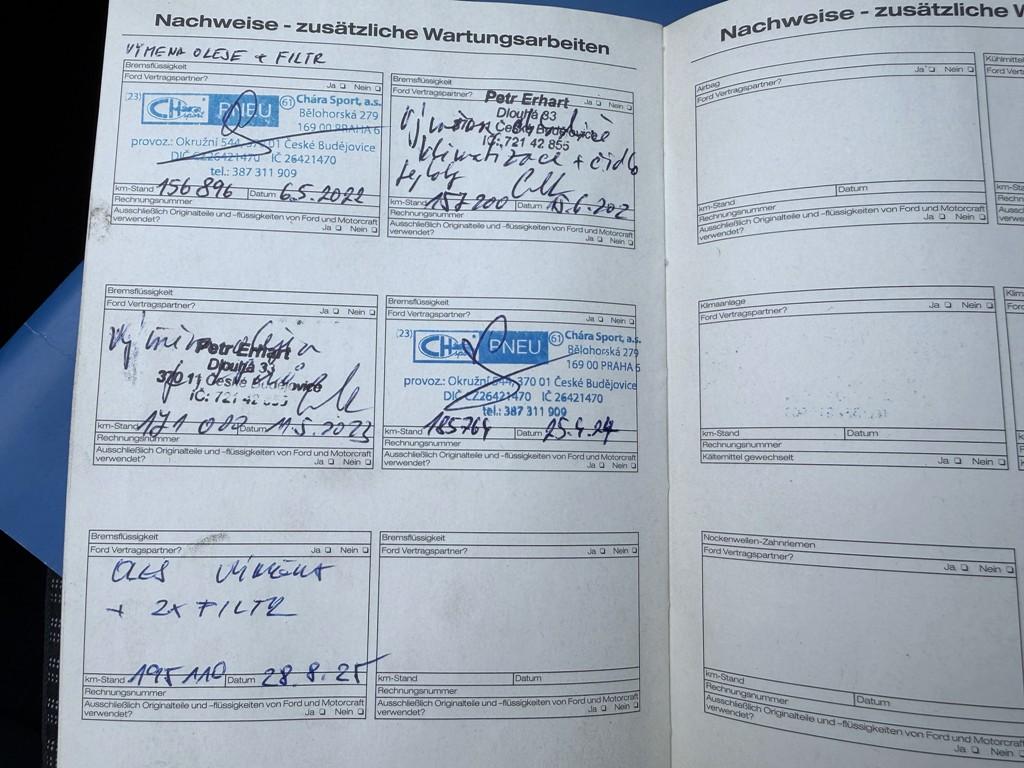 Nachweise - zusätzliche Wartungsarbeiten
VÝMĚNA OLEJE + FILTR
Bremsflüssigkeit
Ford Vertragspartner?
Ja Nein
(23) CH PNEU (61) Chára Sport, a.s.
Bělohorská 279
169 00 PRAHA 6
provoz.: Okružní 544, 370 01 České Budějovice
DIČ CZ26421470 IČ 26421470
tel.: 387 311 909
km-Stand 156 896 Datum 6.5.2022
Rechnungsnummer
Ausschließlich Originalteile und -flüssigkeiten von Ford und Motorcraft
verwendet? Ja Nein
Bremsflüssigkeit
Ford Vertragspartner?
Ja Nein
Petr Erhart
Dlouhá 33
České Budějovice
IČ: 721 42 855
klimatizace + čidlo
teploty
km-Stand 157 200 Datum 15.6.202
Rechnungsnummer
Ausschließlich Originalteile und -flüssigkeiten von Ford und Motorcraft
verwendet? Ja Nein
Bremsflüssigkeit
Ford Vertragspartner?
Ja Nein
Petr Erhart
Dlouhá 33
370 11 České Budějovice
IČ: 721 42 855
km-Stand 171 000 Datum 11.5.2023
Rechnungsnummer
Ausschließlich Originalteile und -flüssigkeiten von Ford und Motorcraft
verwendet? Ja Nein
Bremsflüssigkeit
Ford Vertragspartner?
Ja Nein
(23) CH PNEU (61) Chára Sport, a.s.
Bělohorská 279
169 00 PRAHA 6
provoz.: Okružní 544, 370 01 České Budějovice
DIČ CZ26421470 IČ 26421470
tel.: 387 311 909
km-Stand 185764 Datum 25.4.24
Rechnungsnummer
Ausschließlich Originalteile und -flüssigkeiten von Ford und Motorcraft
verwendet? Ja Nein
Bremsflüssigkeit
Ford Vertragspartner? Ja Nein
OLEJ VÝMĚNA
+ 2X FILTR
km-Stand 195 110 Datum 28.8.25
Rechnungsnummer
Ausschließlich Originalteile und -flüssigkeiten von Ford und Motorcraft
verwendet? Ja Nein
Bremsflüssigkeit
Ford Vertragspartner? Ja Nein
km-Stand Datum
Rechnungsnummer
Ausschließlich Originalteile und -flüssigkeiten von Ford und Motorcraft
verwendet? Ja Nein
Nachweise - zusätzliche W
Airbag
Ford Vertragspartner?
Ja Nein
km-Stand Datum
Rechnungsnummer
Ausschließlich Originalteile und -flüssigkeiten von Ford und Motorcraft
verwendet? Ja Nein
Kühlmittel
Klimaanlage
Ford Vertragspartner? Ja Nein
km-Stand Datum
Rechnungsnummer
Kältemittel gewechselt Ja Nein
Nockenwellen-Zahnriemen
Ford Vertragspartner?
Ja Nein
km-Stand
Rechnungsnummer Datum
Ausschließlich Originalteile und -flüssigkeiten von Ford und Motorcraft
verwendet? Ja Nein